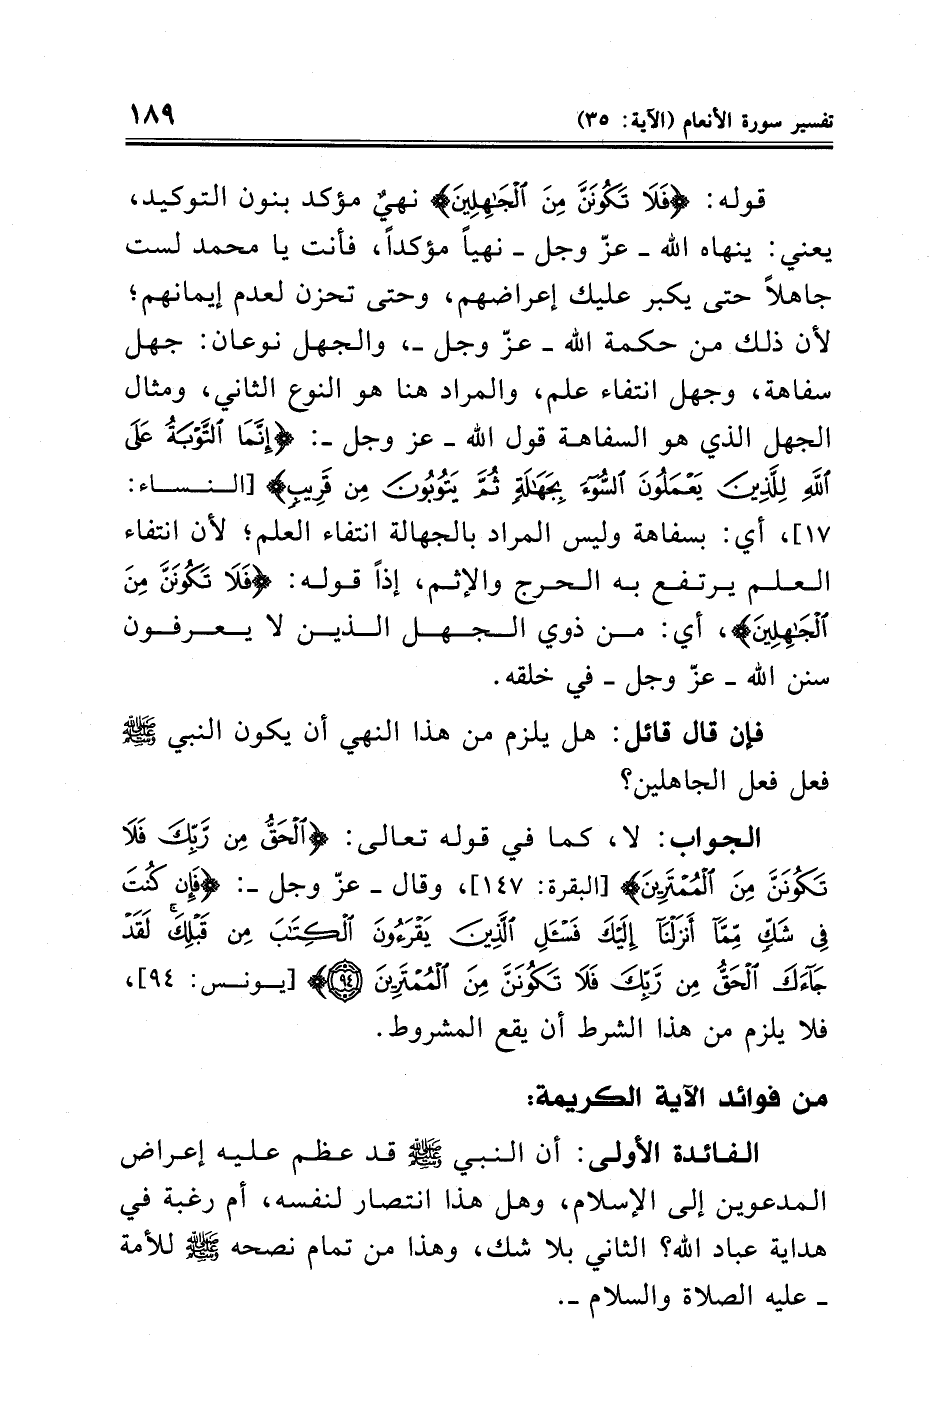 تفسير سورة الأنعام (الآية: ٣٥) ١٨٩
قوله: ﴿فَلَا تَكُونَنَّ مِنَ ٱلْجَٰهِلِينَ﴾ نهيٌ مؤكد بنون التوكيد،
يعني: ينهاه الله ـ عزّ وجل ـ نهياً مؤكداً، فأنت يا محمد لست
جاهلاً حتى يكبر عليك إعراضهم، وحتى تحزن لعدم إيمانهم؛
لأن ذلك من حكمة الله ـ عزّ وجل ـ، والجهل نوعان: جهل
سفاهة، وجهل انتفاء علم، والمراد هنا هو النوع الثاني، ومثال
الجهل الذي هو السفاهة قول الله ـ عز وجل ـ: ﴿إِنَّمَا ٱلتَّوْبَةُ عَلَى
ٱللَّهِ لِلَّذِينَ يَعْمَلُونَ ٱلسُّوٓءَ بِجَهَٰلَةٍ ثُمَّ يَتُوبُونَ مِن قَرِيبٍ﴾ [النساء:
١٧]، أي: بسفاهة وليس المراد بالجهالة انتفاء العلم؛ لأن انتفاء
العلم يرتفع به الحرج والإثم، إذاً قوله: ﴿فَلَا تَكُونَنَّ مِنَ
ٱلْجَٰهِلِينَ﴾، أي: من ذوي الجهل الذين لا يعرفون
سنن الله ـ عزّ وجل ـ في خلقه.
فإن قال قائل: هل يلزم من هذا النهي أن يكون النبي ﷺ
فعل فعل الجاهلين؟
الجواب: لا، كما في قوله تعالى: ﴿ٱلْحَقُّ مِن رَّبِّكَ فَلَا
تَكُونَنَّ مِنَ ٱلْمُمْتَرِينَ﴾ [البقرة: ١٤٧]، وقال ـ عزّ وجل ـ: ﴿فَإِن كُنتَ
فِى شَكٍّ مِّمَّآ أَنزَلْنَآ إِلَيْكَ فَسْـَٔلِ ٱلَّذِينَ يَقْرَءُونَ ٱلْكِتَٰبَ مِن قَبْلِكَ ۚ لَقَدْ
جَآءَكَ ٱلْحَقُّ مِن رَّبِّكَ فَلَا تَكُونَنَّ مِنَ ٱلْمُمْتَرِينَ ٩٤﴾ [يونس: ٩٤]،
فلا يلزم من هذا الشرط أن يقع المشروط.
من فوائد الآية الكريمة:
الفائدة الأولى: أن النبي ﷺ قد عظم عليه إعراض
المدعوين إلى الإسلام، وهل هذا انتصار لنفسه، أم رغبة في
هداية عباد الله؟ الثاني بلا شك، وهذا من تمام نصحه ﷺ للأمة
ـ عليه الصلاة والسلام ـ.